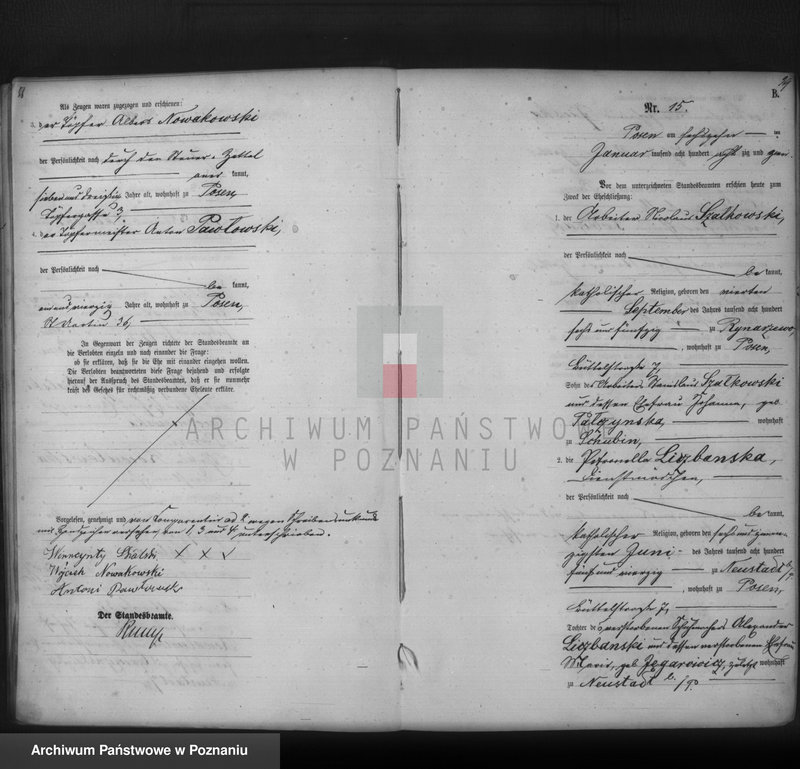 Als Zeugen waren zugezogen und erschienen:
3. der Töpfer Albert Nowakowski
der Persönlichkeit nach durch den Steuer-Zettel
aner kannt,
sieben und dreißig Jahre alt, wohnhaft zu Posen
Töpfergasse 3,
4. der Töpfermeister Anton Pawłowski,
der Persönlichkeit nach
be kannt,
ein und vierzig Jahre alt, wohnhaft zu Posen,
St Martin 36,
In Gegenwart der Zeugen richtete der Standesbeamte an
die Verlobten einzeln und nach einander die Frage:
ob sie erklären, daß sie die Ehe mit einander eingehen wollen.
Die Verlobten beantworteten diese Frage bejahend und erfolgte
hierauf der Ausspruch des Standesbeamten, daß er sie nunmehr
kraft des Gesetzes für rechtmäßig verbundene Eheleute erkläre.
Vorgelesen, genehmigt und von Comparentin ad 2 wegen Schreibensunkunde
mit Handzeichen versehen, von 1, 3 und 4 unterschrieben.
X X X
Wojciech Nowakowski
Antoni Pawłowski
Der Standesbeamte.
B.
Nr. 15.
Posen am sechszehn ten
Januar tausend acht hundert acht zig und zwei
Vor dem unterzeichneten Standesbeamten erschien heute zum
Zweck der Eheschließung:
1. der Arbeiter Nicolaus Szałkowski,
der Persönlichkeit nach
be kannt,
katholischer Religion, geboren den vierten
September des Jahres tausend acht hundert
sechs und fünfzig zu Rynarzewo,
, wohnhaft zu Posen,
Büttelstraße 7,
Sohn des Arbeiters Stanislaus Szałkowski
und dessen Ehefrau Johanna, geb.
wohnhaft
zu Schubin,
2. die Petronella Liczbanska,
Dienstmädchen,
der Persönlichkeit nach
be kannt,
katholischer Religion, geboren den sechs und zwan-
zigsten Juni des Jahres tausend acht hundert
fünf und vierzig zu Neustadt b/P.
, wohnhaft zu Posen,
Büttelstraße 7,
Tochter des verstorbenen Schuhmachers Alexander
Liczbanski und dessen verstorbenen Ehefrau
Marie, geb. Zegarowicz, zuletzt wohnhaft
zu Neustadt b./P.
ARCHIWUM PAŃSTWOWE
W POZNANIU
Archiwum Państwowe w Poznaniu